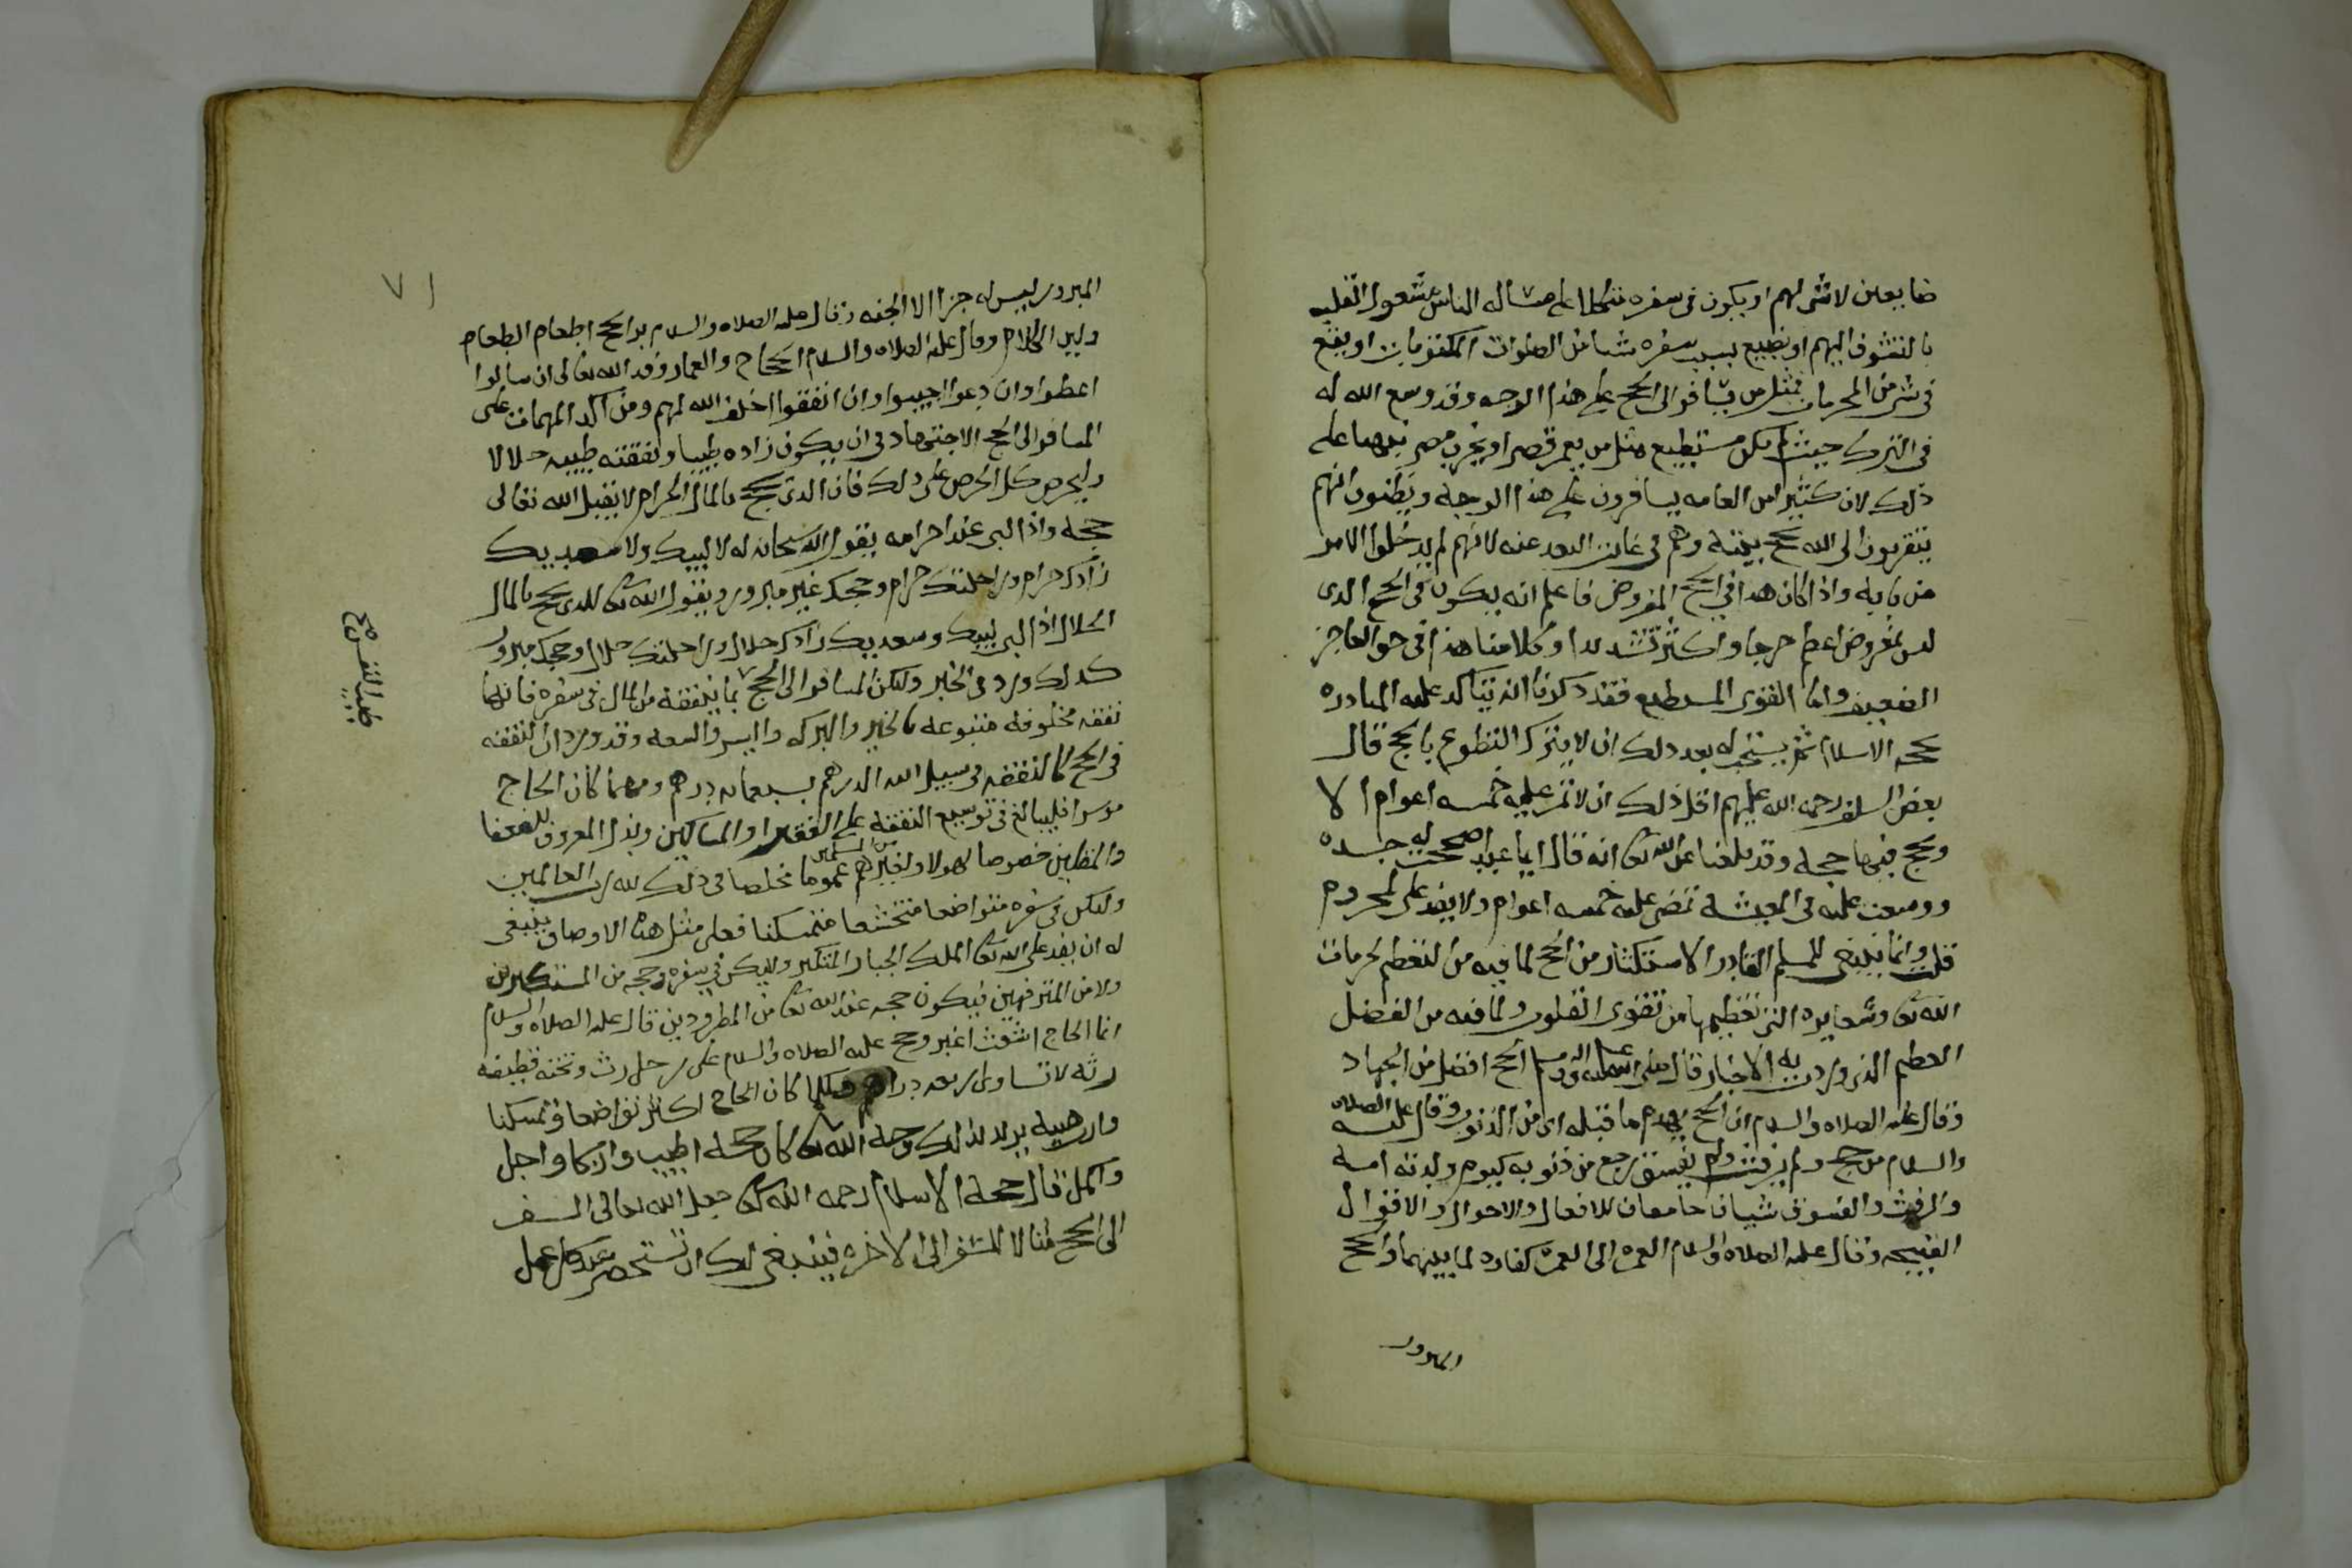 ضايعين لا شي لهم او يكون في سفره متكلا على مساله الناس مشغول القلب
بالتشوف اليهم او يضيع بسبب سفره شيا من الصلوات المكتوبات او يقع
في شي من المحرمات فمثل من يسافر الى الحج على هذا الوجه وقد وسع الله له
في الترك حيث لم يكن مستطيع مثل من يعمر قصرا ويخرب مصر نبهنا على
ذلك لان كثيرا من العامه يسافرون على هذا الوجه ويظنون انهم
يتقربون الى الله بحج بيته وهم في غايت البعد عنه لانهم لم يدخلوا الامر
من بابه واذا كان هذا في الحج المفروض فاعلم انه يكون في الحج الذي
ليس بمفروض اعظم حرجا واكثر تشديدا وكلامنا هذا في حق العاجز
الضعيف واما القوي المستطيع فقد ذكرنا انه يتاكد عليه المبادره
بحجه الاسلام ثم يستحب له بعد ذلك ان لا يترك التطوع بالحج قال
بعض السلف رحمه الله عليهم اقل ذلك ان لا تمر عليه خمسه اعوام الا
ويحج فيها حجه وقد بلغنا عن الله تعا انه قال ايما عبد اصححت له جسده
ووسعت عليه في المعيشه تمضي عليه خمسه اعوام ولا يفد علي لمحروم
قلت وانما ينبغي للمسلم القادر الاستكثار من الحج لما فيه من التعظيم لحرمات
الله تعا وشعايره التي تعظيمها من تقوى القلوب ولما فيه من الفضل
العظيم الذي وردت به الاخبار قال صلى الله عليه واله وسلم الحج افضل من الجهاد
وقال عليه الصلاه والسلام ان الحج يهدم ما قبله اي من الذنوب وقال عليه الصلاه
والسلام من حج ولم يرفث ولم يفسق رجع من ذنوبه كيوم ولدته امه
والرفث والفسوق شيان جامعان للافعال والاحوال والاقوال
القبيحه وقال عليه الصلاه والسلام العمره الى العمره كفاره لما بينهما والحج
المبرور
٧١
المبرور ليس له جزا الا الجنه وقال عليه الصلاه والسلام بر الحج اطعام الطعام
ولين الكلام وقال عليه الصلاه والسلام الحجاج والعمار وفد الله تعالى ان سالوا
اعطوا وان دعوا اجيبوا وان انفقوا اخلف الله لهم ومن اكد المهمات على
المسافر الى الحج الاجتهاد في ان يكون زاده طيبا ونفقته طيبه حلالا
وليحرص كل الحرص على ذلك فان الذي يحج بالمال الحرام لا يقبل الله تعالى
حجه واذا لبى عند احرامه يقول الله سبحانه له لا لبيك ولا سعديك
زادك حرام وراحلتك حرام وحجك غير مبرور ويقول الله تعا للذي يحج بالمال
الحلال اذا لبى لبيك وسعديك زادك حلال وراحلتك حلال وحجك مبرور
كذلك ورد في الخبر وليكن المسافر الى الحج بما ينفقه من المال في سفره فانها
نفقه مخلوفه متبوعه بالخير والبركه واليسر والسعه وقد ورد ان النفقه
في الحج كالنفقه في سبيل الله الدرهم بسبعمايه درهم ومهما كان الحاج
موسرا فليبالغ في توسيع النفقه على الفقرا والمساكين وبذل المعروف للضعفا
والمقلين خصوصا لهولا ولغيرهم من المسلمين عموما مخلصا في ذلك لله رب العالمين
وليكن في سفره متواضعا متخشعا متمسكنا فعلى مثل هذه الاوصاف ينبغي
له ان يفد على الله تعا الملك الجبار المتكبر ولا يكن في سفره وحجه من المستكبرين
ولا من المترفهين فيكون حجه عند الله تعا من المطرودين قال عليه الصلاه والسلام
انما الحاج اشعث اغبر وحج عليه الصلاه والسلام على رحل رث وتحته قطيفه
رثه لا تساوي اربعه دراهم وكلما كان الحاج اكثر تواضعا وتمسكنا
وارهبيه يريد بذلك وجه الله تعا كان حجه اطيب وازكا واجل
واكمل قال حجه الاسلام رحمه الله تعا جعل الله تعالى السفر
الى الحج مثالا للسفر الى الاخره فينبغي لك ان تستحضر عند كل عمل